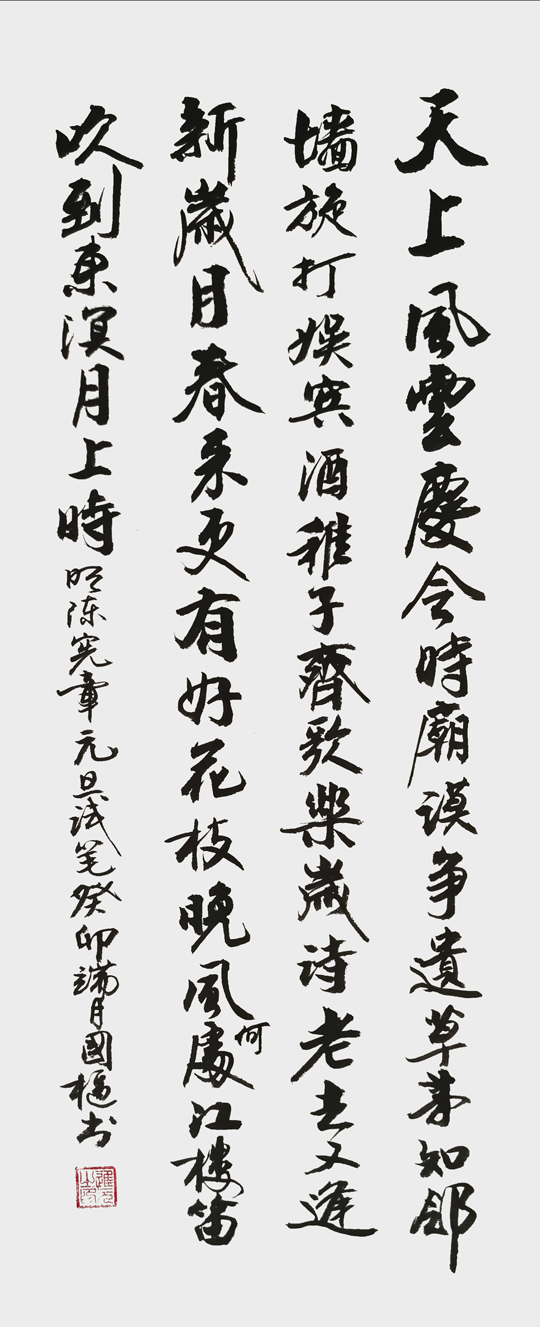 天上風雲慶会時廟謨争遺草茅知邻
墙旋打娱賓酒稚子齊歌樂歲诗老去又逢
新歲月春来更有好花枝晚風何處江樓笛
吹到東溟月上時 明陈宪章元旦试笔癸卯端月國樞书